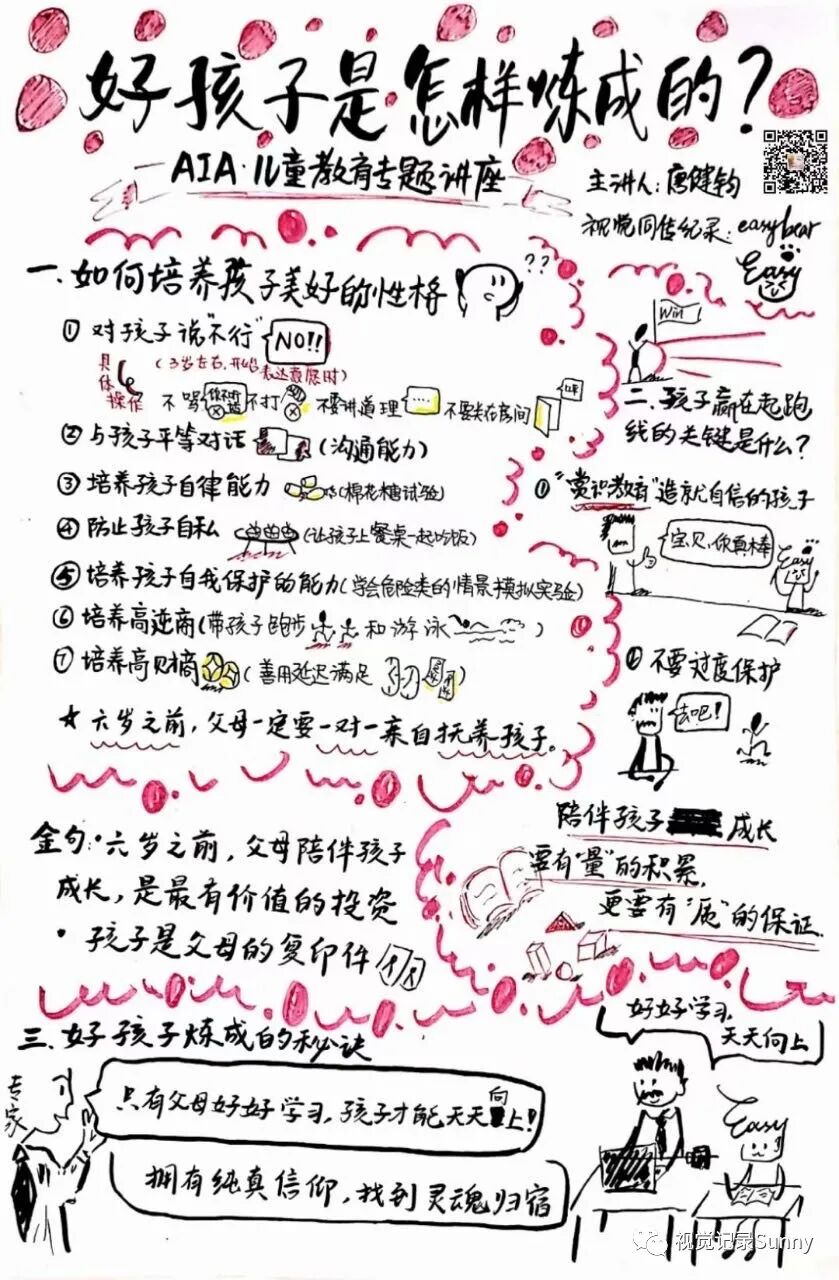 好孩子是怎样炼成的?
AIA·儿童教育专题讲座
主讲人:唐健钧
视觉同传纪录:easybear
Easy
一.如何培养孩子美好的性格
??
① 对孩子说"不行" NO!!
(3岁左右,开始表达意愿时)
具体操作
不骂 不打 不要讲道理 .... 不要关在房间
② 与孩子平等对话 (沟通能力)
③ 培养孩子自律能力 (棉花糖试验)
④ 防止孩子自私 (让孩子上餐桌一起吃饭)
⑤ 培养孩子自我保护的能力(学会危险类的情景模拟实验)
⑥ 培养高逆商(带孩子跑步 和游泳 )
⑦ 培养高财商 (善用延迟满足 )
★ 六岁之前,父母一定要一对一亲自抚养孩子。
Win
二.孩子赢在起跑
线的关键是什么?
① "赏识教育"造就自信的孩子
宝贝,你真棒
Easy
② 不要过度保护
去吧!
金句:·六岁之前,父母陪伴孩子
成长,是最有价值的投资
·孩子是父母的复印件
陪伴孩子 成长
要有"量"的积累,
更要有"质"的保证.
三.好孩子炼成的秘诀
专家
只有父母好好学习,孩子才能天天向上!
拥有纯真信仰,找到灵魂归宿
好好学习,
天天向上
Easy
视觉记录Sunny